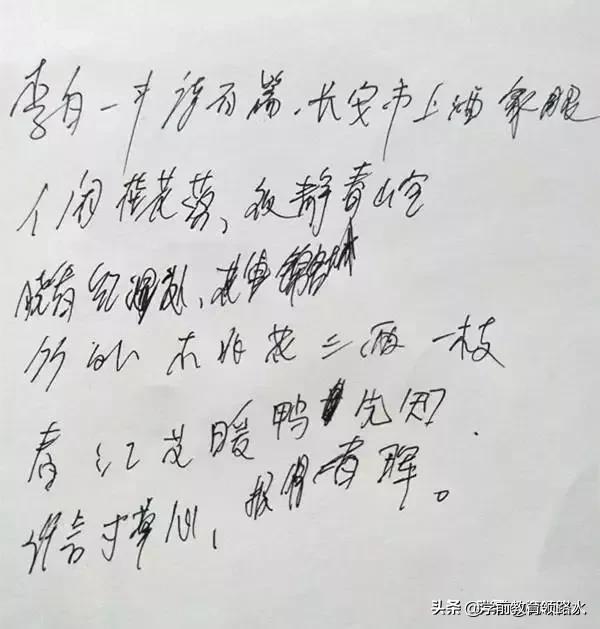 李白一斗诗百篇,长安市上酒家眠
人闲桂花落、夜静春山空
晓看红湿处、花重锦官城
花三两一枝
春江花暖鸭先知.
谁言寸草心,报得春晖。
头条 @学前教育领路水